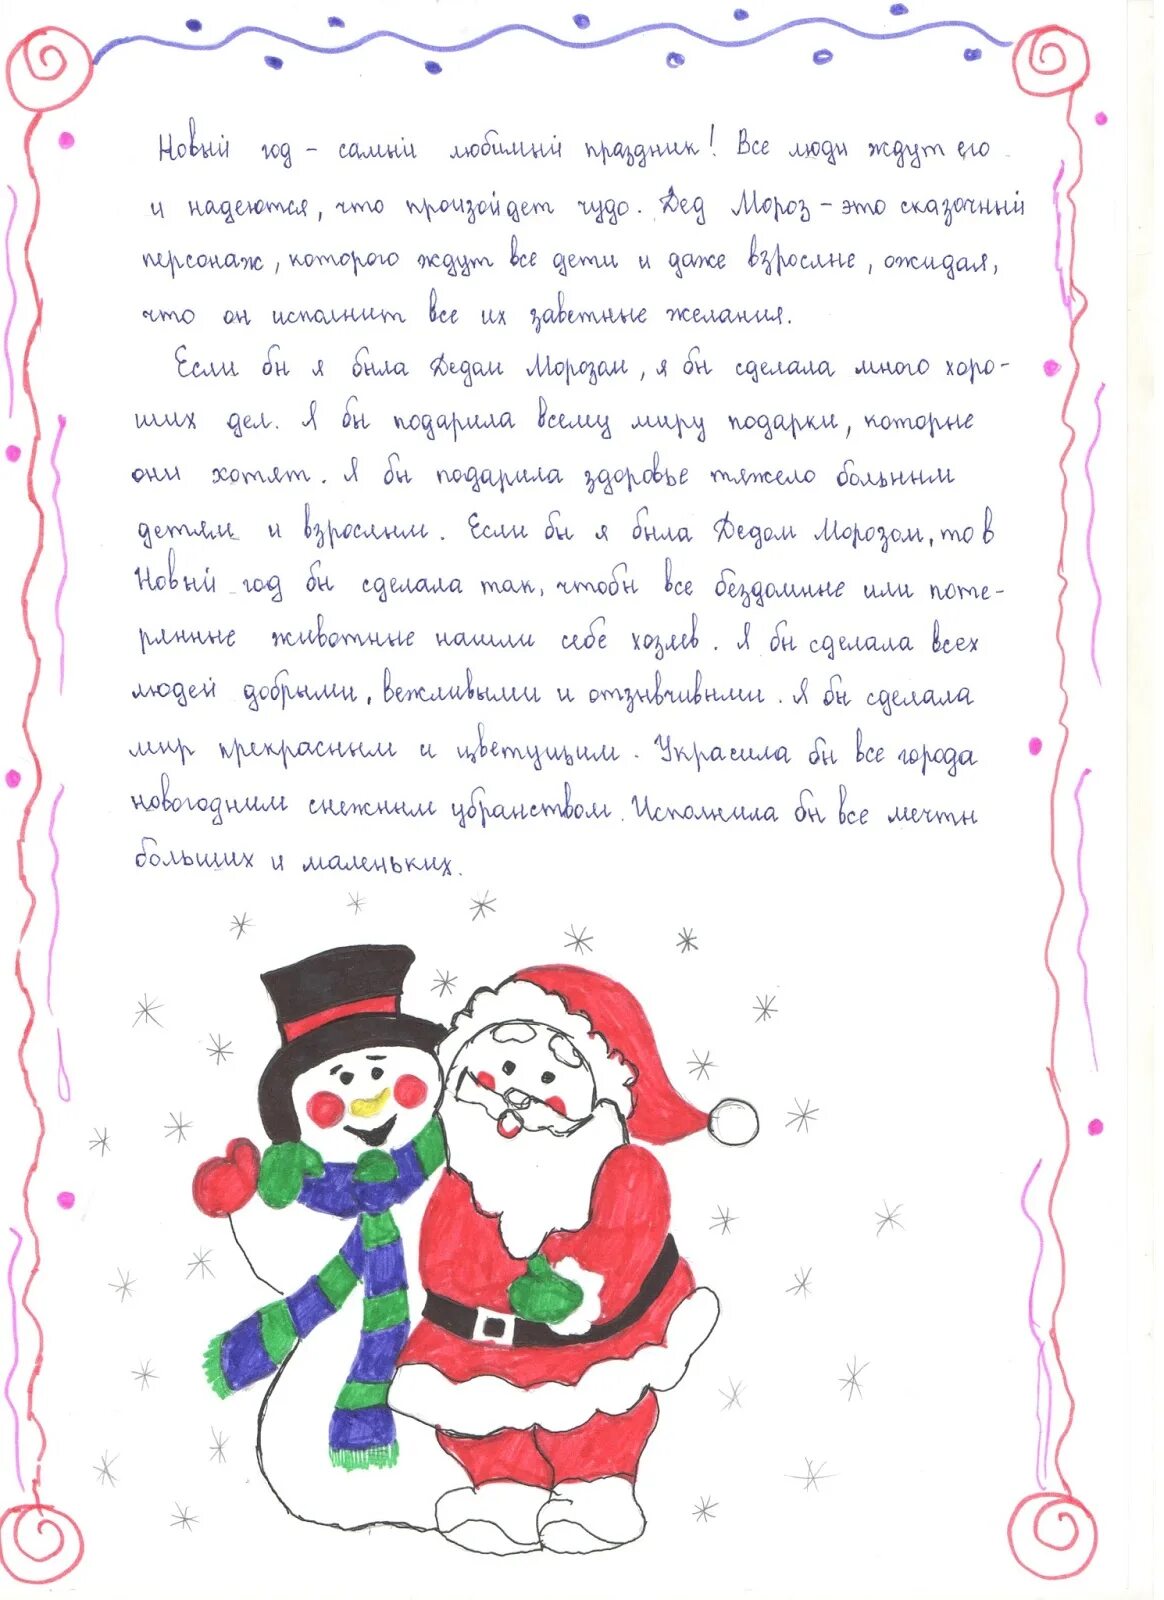 Новый год - самый любимый праздник! Все люди ждут его
и надеются, что произойдет чудо. Дед Мороз - это сказочный
персонаж, которого ждут все дети и даже взрослые, ожидая,
что он исполнит все их заветные желания.
Если бы я была Дедом Морозом, я бы сделала много хоро-
ших дел. Я бы подарила всему миру подарки, которые
они хотят. Я бы подарила здоровье тяжело больным
детям и взрослым. Если бы я была Дедом Морозом, то в
Новый год бы сделала так, чтобы все бездомные или поте-
рянные животные нашли себе хозяев. Я бы сделала всех
людей добрыми, вежливыми и отзывчивыми. Я бы сделала
мир прекрасным и цветущим. Украсила бы все города
новогодним снежным убранством. Исполнила бы все мечты
больших и маленьких.